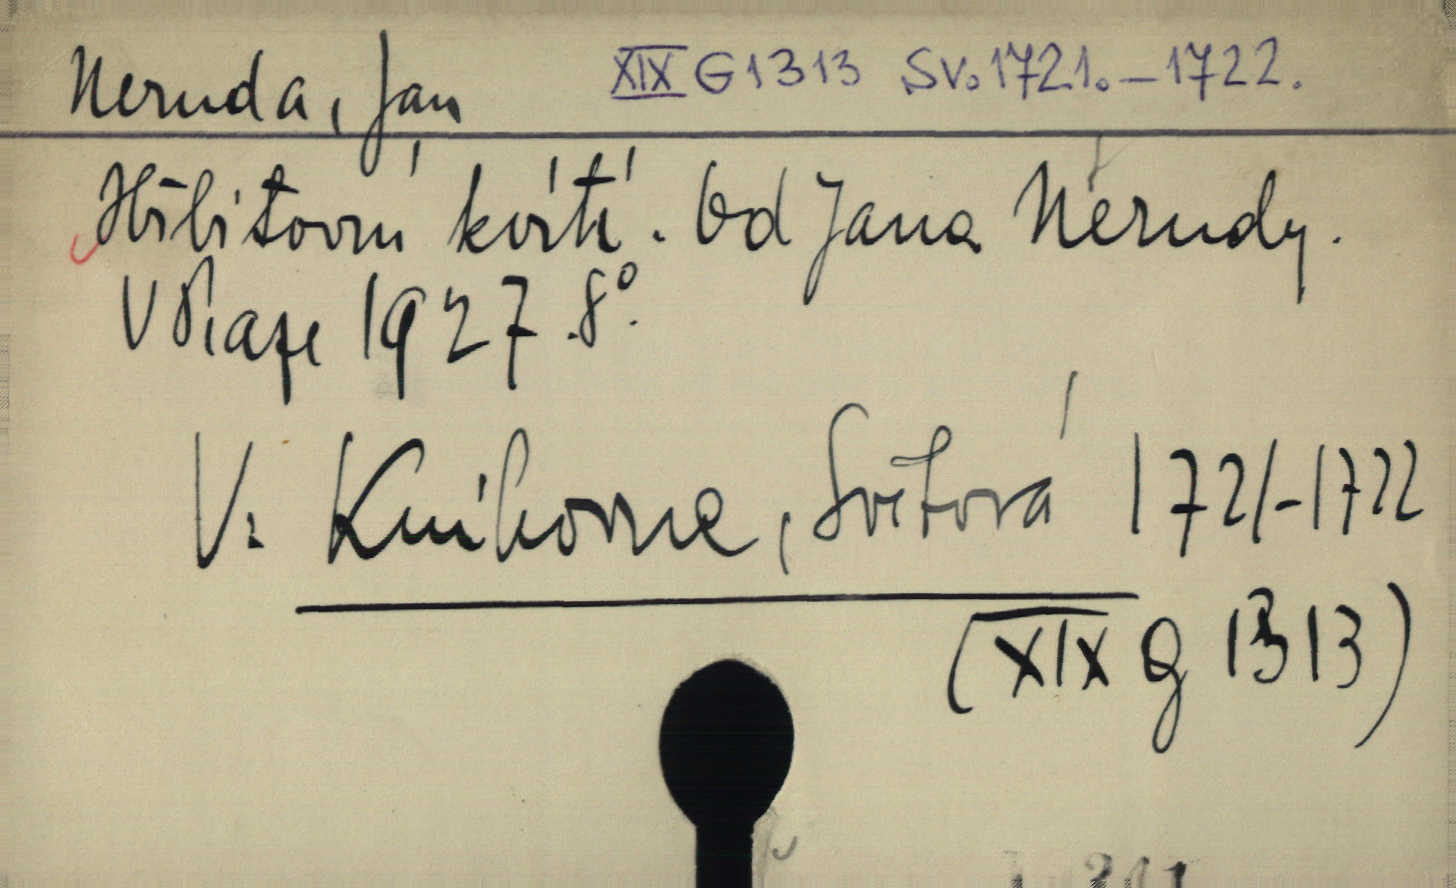 Neruda, Jan XIX G 1313 Sv. 1721. – 1722.
Hřbitovní kvítí. Od Jana Nerudy.
V Praze 1927. 8°.
V: Knihovna, Světová 1721-1722
(XIX G 1313)